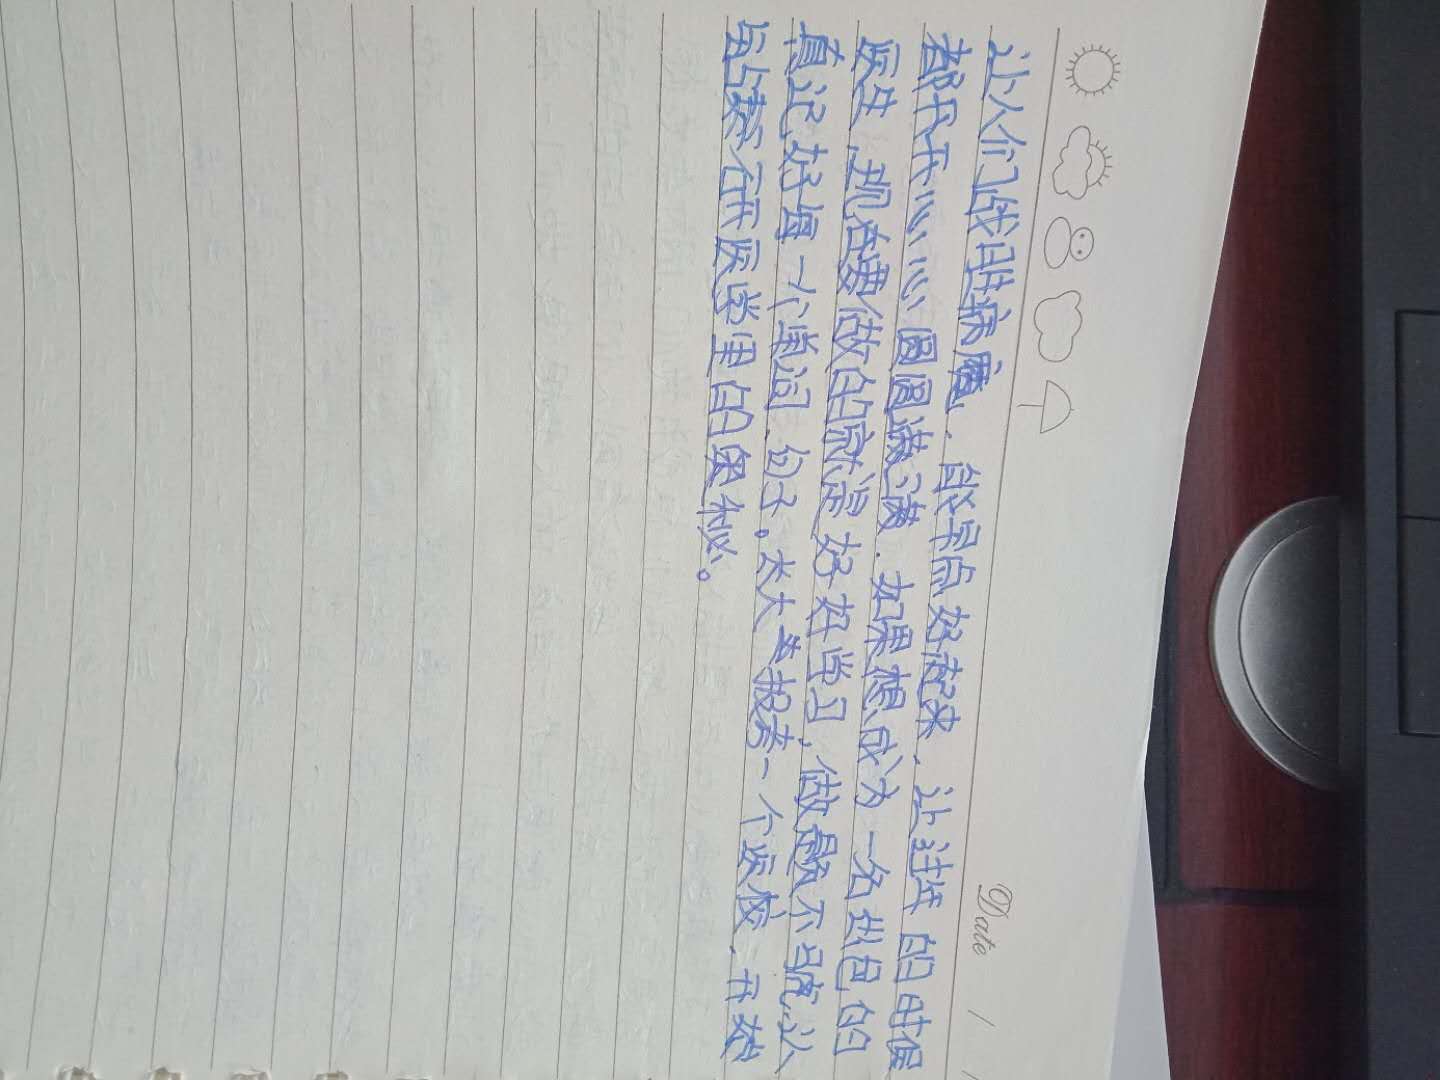 Date / /
让人们战胜病魔、能早点好起来、让过年的时候
都开开心心、圆圆满满．如果想成为一名出色的
医生，现在要做的就是好好学习，做题不马虎，认
真记好每一个单词、句子。大大报考一个医校、开始
钻研医学里的奥秘。